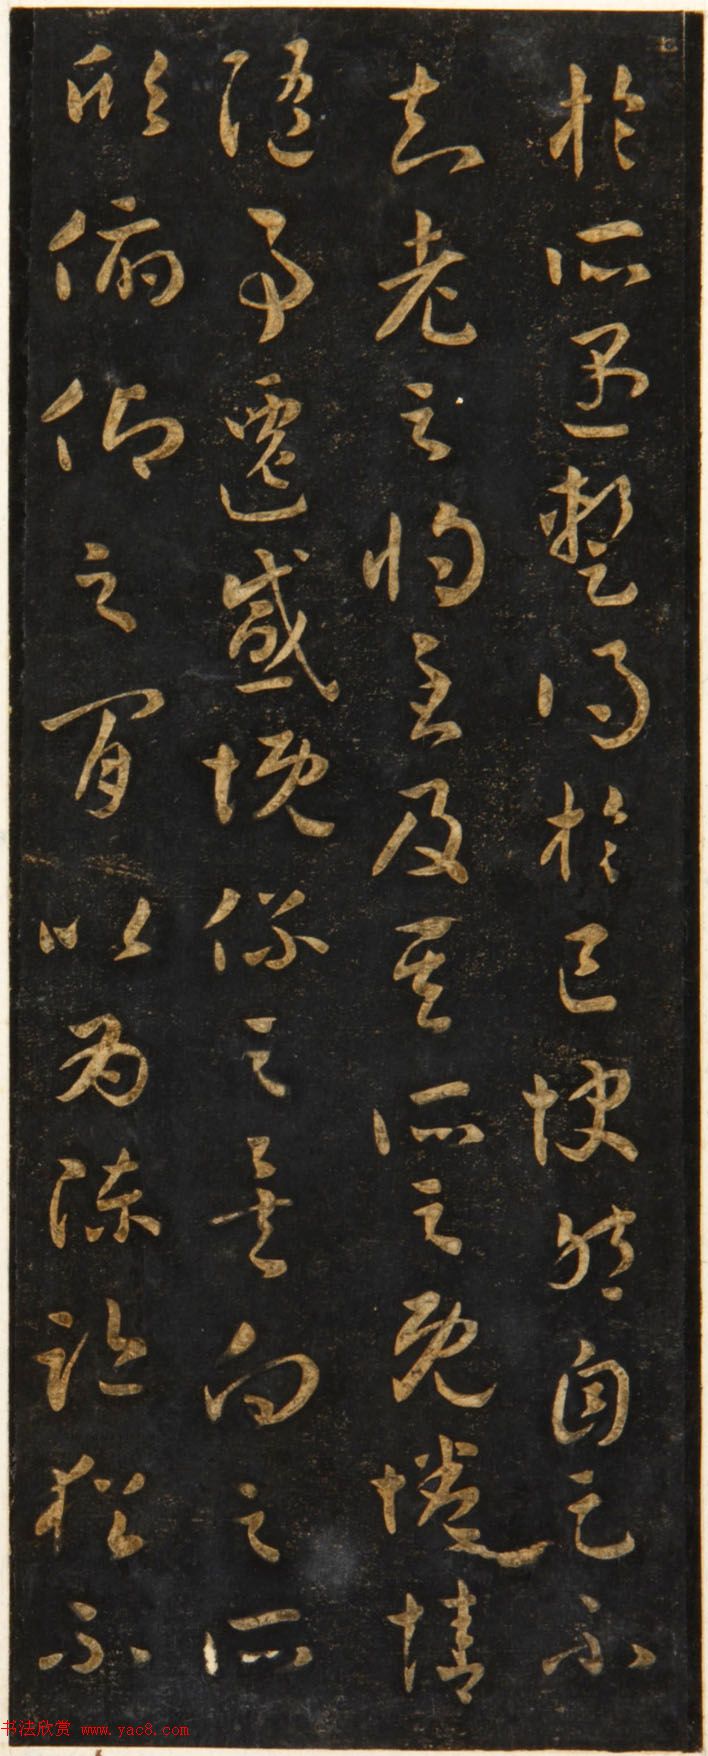 於所遇暫得於己快然自足不
知老之將至及其所之既惓情
隨事遷感慨係之矣向之所
欣俯仰之間以為陳跡猶不
书法欣赏 www.yac8.com